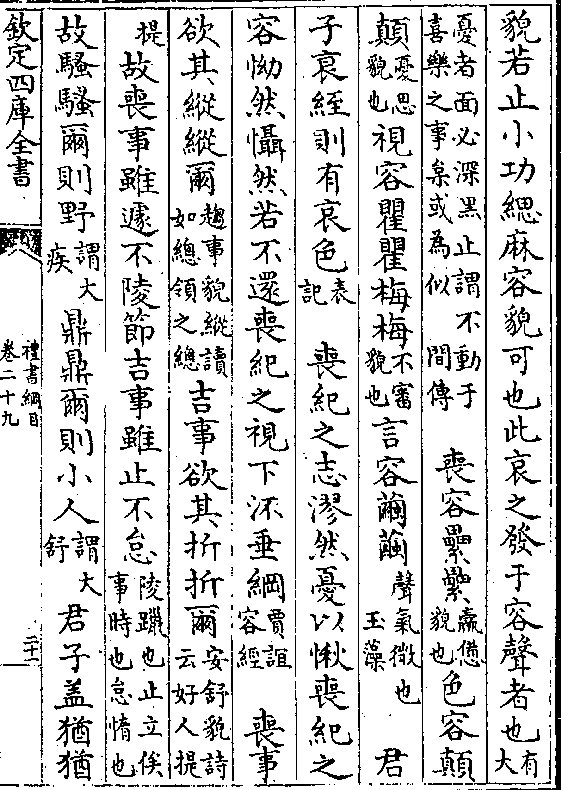 貌若止小功緦麻容貌可也此哀之發于容聲者也有大
憂者面必深黑止謂不動于喜樂之事枲或為似 間傳 喪容纍纍羸憊貌也色容顛
顛憂思貌也視容瞿瞿梅梅不審貌也言容繭繭聲氣微也 玉藻 君
子衰絰則有哀色表記 喪紀之志漻然憂以愀喪紀之
容怮然懾然若不還喪紀之視下沠垂綱賈誼容經 喪事
欲其縱縱爾趨事貌縱讀如總領之總吉事欲其折折爾安舒貌詩云好人提
提故喪事雖遽不陵節吉事雖止不怠陵躐也止立俟事時也怠惰也
故騷騷爾則野謂大疾鼎鼎爾則小人謂大舒君子盖猶猶
欽定四庫全書
禮書綱目
卷二十九
二十一